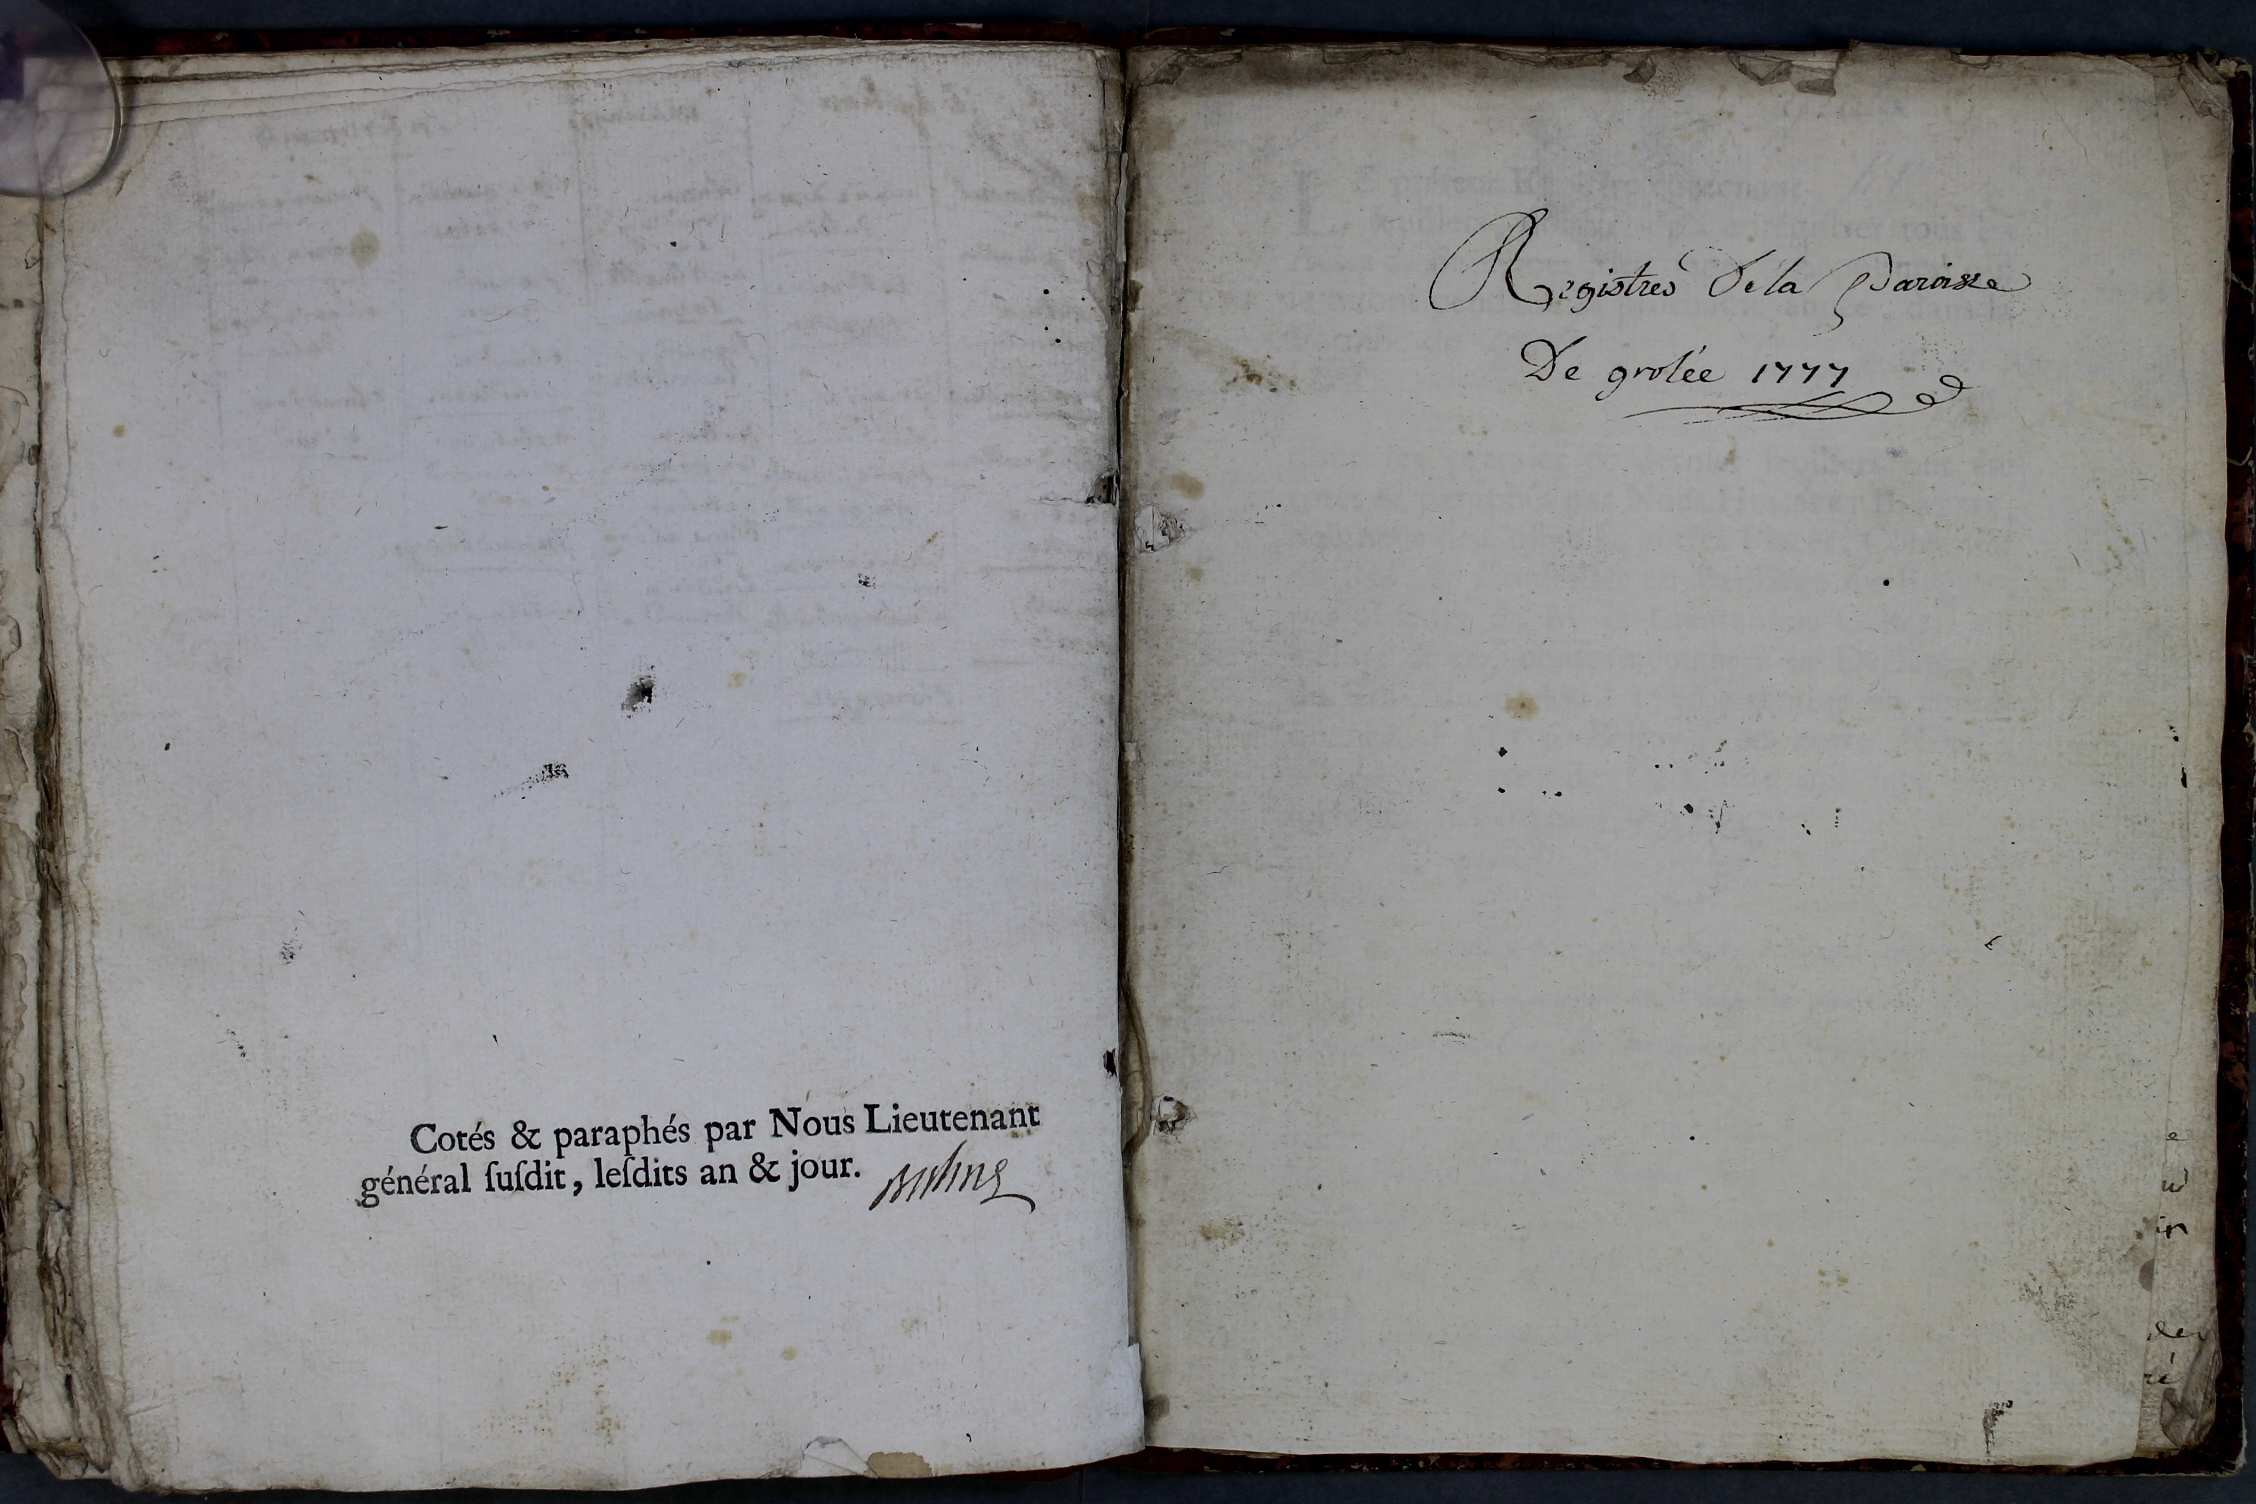 Cotés & paraphés par Nous Lieutenant
général ſuſdit, leſdits an & jour.
Registres De la Paroisse
De grolée 1777